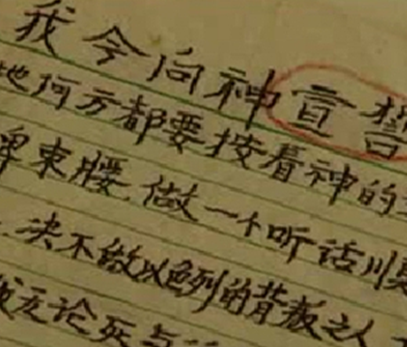 我今向神宣誓
地何方都要按着神的
束腰.做一个听话川
决不做以色列的背叛之人
无论死与